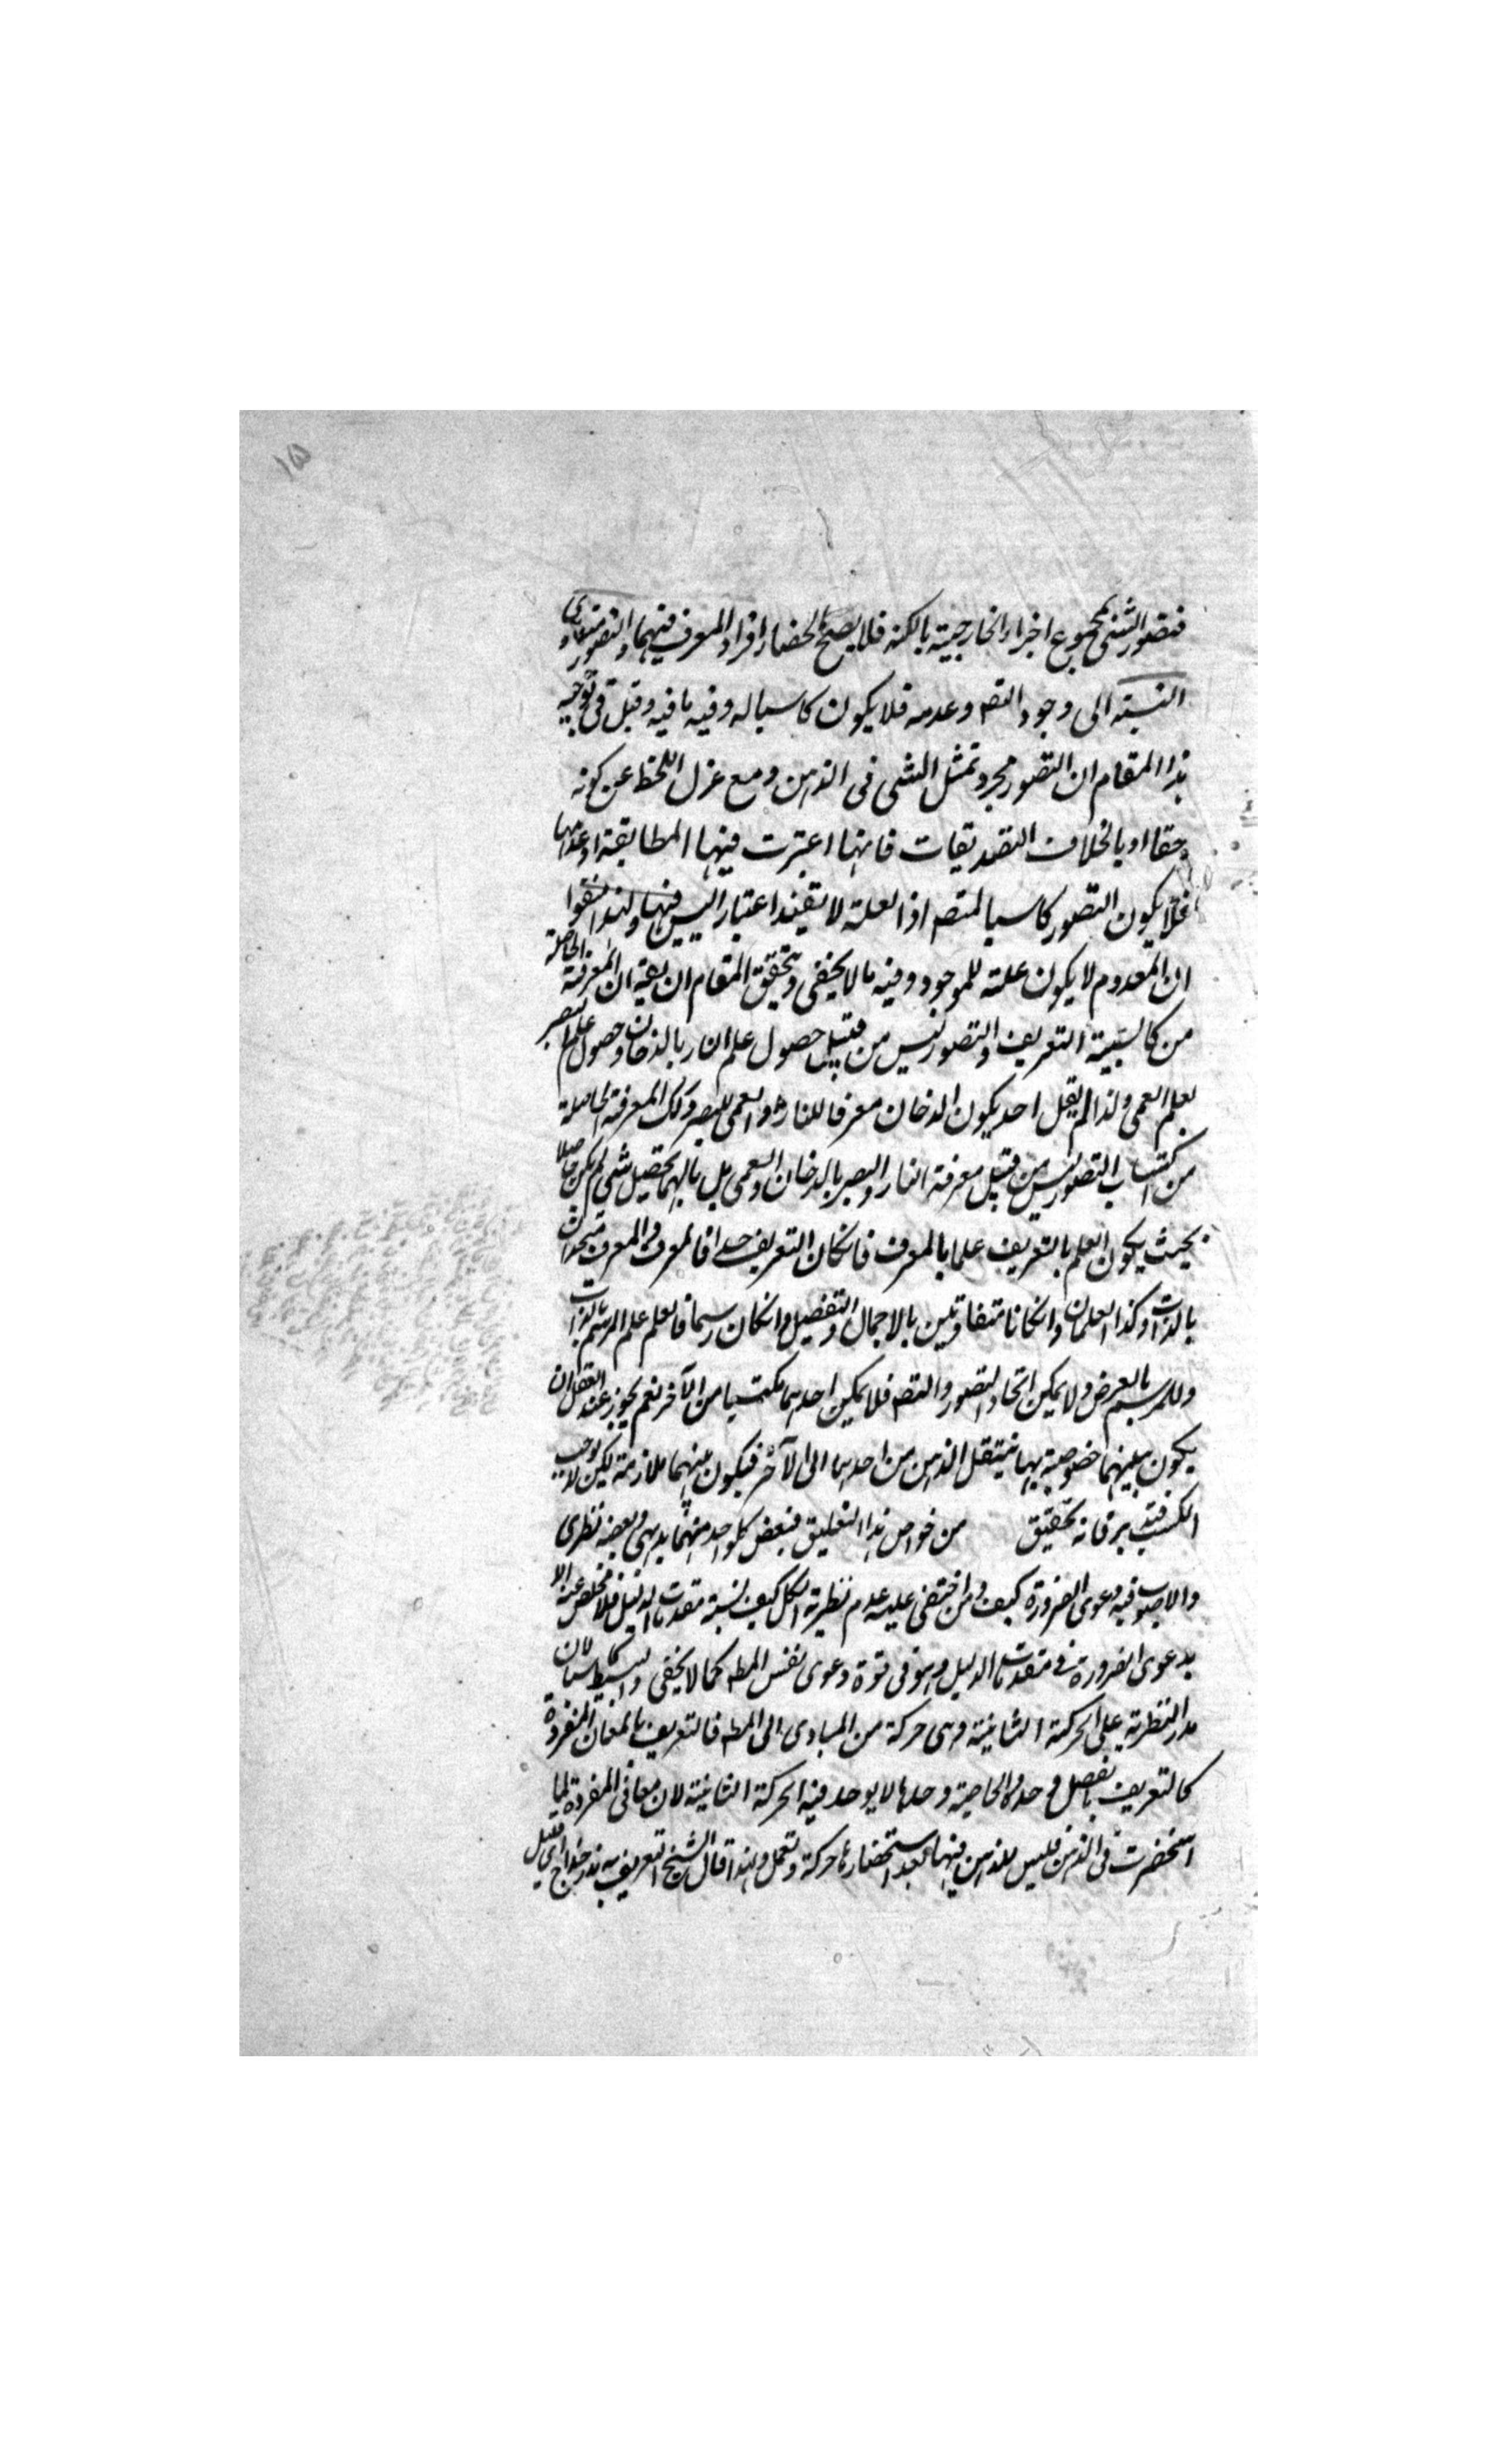 ١٥
فتصور الشئ بمجموع اجزاء الخارجية بالكنه فلا يصح انحصار افراد المعرف فيهما والتصور متساوى
النسبة الى وجود التصـ وعدمه فلا يكون كاسبا له وفيه ما فيه وقيل فى توجيه
هذا المقام ان التصور مجرد تمثل الشى فى الذهن ومع عزل اللحظ عن كونه
حقا او بالخلاف التصديقات فانها اعتبرت فيها المطابقة او عدمها
فلا يكون التصور كاسبا للتصـ اذ العلة لا تفيد اعتبار اليس فيها ولهذا اتفقوا
ان المعدوم لا يكون علة للموجود وفيه ما لا يخفى وتحقيق المقام ان يقـ ان المعرفة الحاصلة
من كاسبية التعريف والتصور ليس من قبيل حصول علم النار بالدخان وحصول علم البصر
بعلم العمى ولذا لم يقل احد يكون الدخان معرفا للنار والعمى للبصر وكك المعرفة الحاصلة
من اكتساب التصور ليس من قبيل معرفة النار والبصر بالدخان والعمى بل مآلها تحصيل شى لم يكن حاصلا
بحيث يكون العلم بالتعريف علما بالمعرف فانكان التعريف حدا فالمعرف والمعرف متحدان
بالذات وكذا العلمان وانكانا متفاوتين بالاجمال والتفصيل وانكان رسما فالعلم علم الرسم بالذات
وللمرسم بالعرض ولا يمكن اتحاد التصور والتصـ فلا يمكن احدهما مكتسبا من الآخر نعم يجوز عند العقل ان
يكون بينهما خصوصية بها ينتقل الذهن من احدهما الى الآخر فيكون بينهما ملازمة لكن لا يوجب
الكسب فتـ برفانه تحقيق من خواص هذا التعليق فبعض كلواحد منهما بديهى وبعضه نظرى
والاصوب فيه دعوى الضرورة كيف ومن اختفى عليه عدم نظرية الكل كيف نسبة مقدمات الدليل فلا مخلص عنه الا
بدعوى الضرورة فى مقدمات الدليل وهو فى قوة دعوى نفس المطـ كما لا يخفى والبسيط كاسبا لان
مدار النظرية على الحركة الثانية وهى حركة من المبادى الى المطـ فالتعريف بالمعان المنفردة
كالتعريف بالفصل وحده والخاصة وحدها لا يوجد فيه الحركة الثانية لان معانى المفردة لما
استحضرت فى الذهن فليس للذهن فيها بعد استحضارها حركة وتعمل ولهذا قال الشيخ التعريف به نذر خداج اى قليل